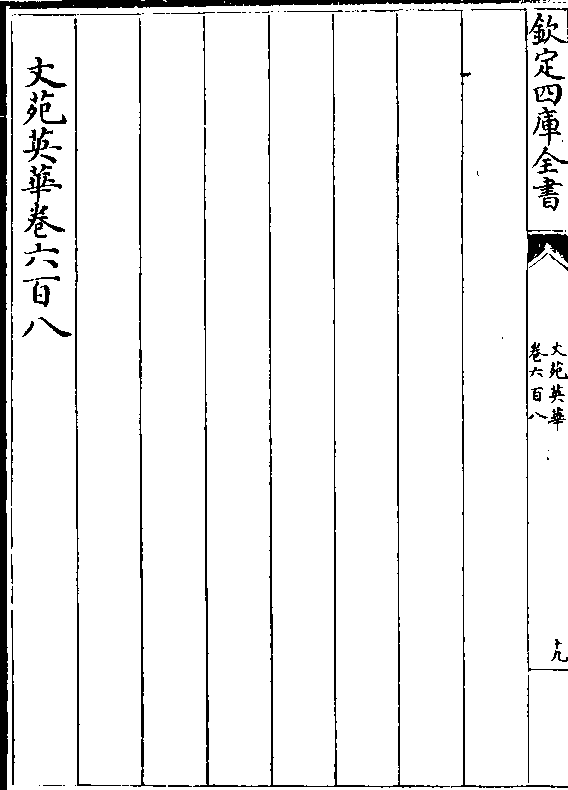 欽定四庫全書
文苑英華
卷六百八
十九
文苑英華卷六百八